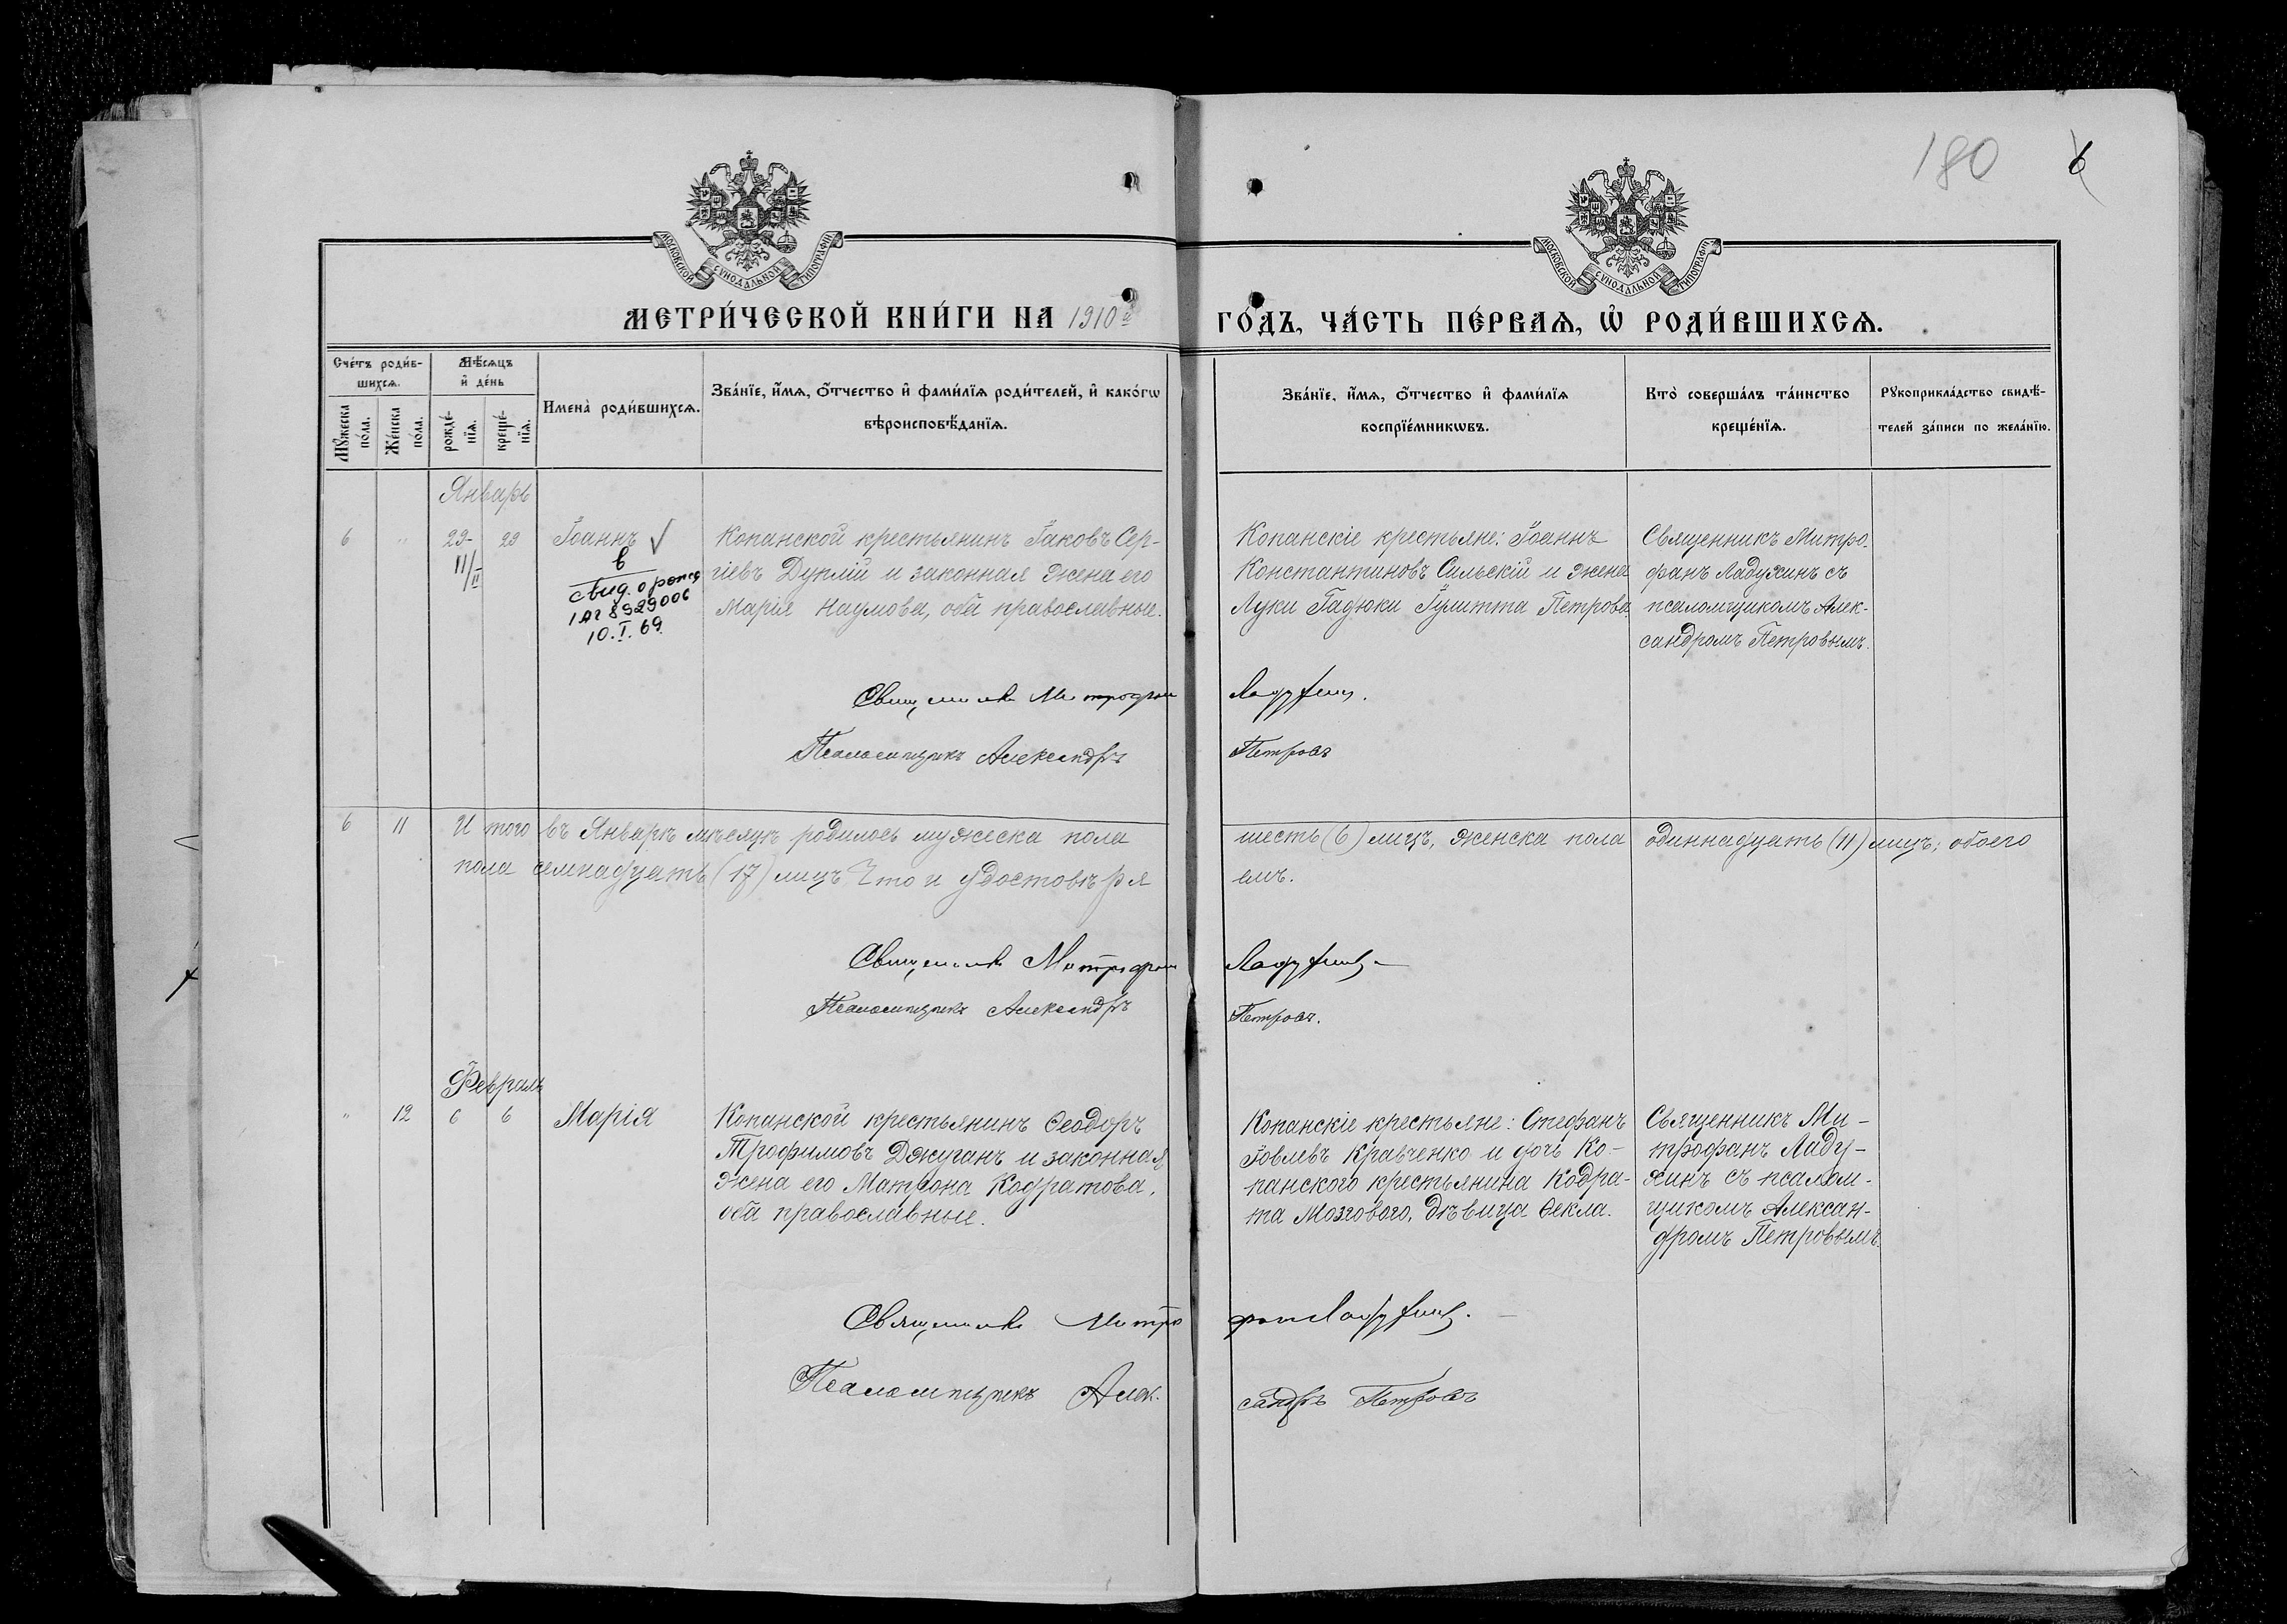 180 6
МОСКОВСКОЙ СѴНОДАЛЬНОЙ ТИПОГРАФІИ
МОСКОВСКОЙ СѴНОДАЛЬНОЙ ТИПОГРАФІИ
МЕТРИ́ЧЕСКОЙ КНИ́ГИ НА 1910й
ГО́ДЪ, ЧА́СТЬ ПЕ́РВАѦ, Ѡ҆ РОДИ́ВШИХСѦ.
Сче́тъ роди́в-
шихсѧ.
Мꙋ́жеска
по́ла.
Же́нска
пола.
Мѣ́сѧцъ
и҆ де́нь
рожде́-
нїѧ.
креще́-
нїѧ.
Имена̀ роди́вшихсѧ.
Зва́нїе, и҆́мѧ, ѻ҆́тчество и҆ фами́лїѧ роди́телей, и҆ како́гѡ
вѣроисповѣ́данїѧ.
Зва́нїе, и҆́мѧ, ѻ҆́тчество и҆ фами́лїѧ
воспрїе́мникѡвъ.
Кто̀ соверша́лъ та́инство
креще́нїѧ.
Рꙋкоприкла́дство свидѣ́-
телей за́писи по жела́нїю.
Январь
6 " 29- 29 Іоаннъ √
II/II
в
свид. о рожд
1 АГ 8929006
10.I.69
Копанской крестьянинъ Іаковъ Сер-
гіевъ Дуплій и законная жена его
Марія Наумова, оба православные.
Копанскіе крестьяне: Іоаннъ
Константиновъ Сильскій и жена
Луки Гадюки Іулитта Петрова.
Священникъ Митро-
фанъ Ладухинъ съ
псаломщикомъ Алек-
сандромъ Петровымъ.
Священникъ Митрофанъ Ладухинъ.
Псаломщикъ Александръ Петровъ
6 11 И того въ Январѣ мѣсяцѣ родилось мужеска пола шесть (6) лицъ, женска пола одиннадцать (11) лицъ; обоего
пола семнадцать (17) лицъ. Что и удостовѣряемъ.
Священникъ Митрофанъ Ладухинъ
Псаломщикъ Александръ Петровъ.
Февраль
" 12 6 6 Марія
Копанской крестьянинъ Ѳеодоръ
Трофимовъ Джуганъ и законная
жена его Матрона Кодратова,
оба православные.
Копанскіе крестьяне: Стефанъ
Іовлевъ Кравченко и дочь Ко-
панского крестьянина Кодра-
та Мозгового, дѣвица Ѳекла.
Священникъ Ми-
трофанъ Ладу-
хинъ съ псалом-
щикомъ Алексан-
дромъ Петровымъ.
Священникъ Митрофанъ Ладухинъ.
Псаломщикъ Александръ Петровъ